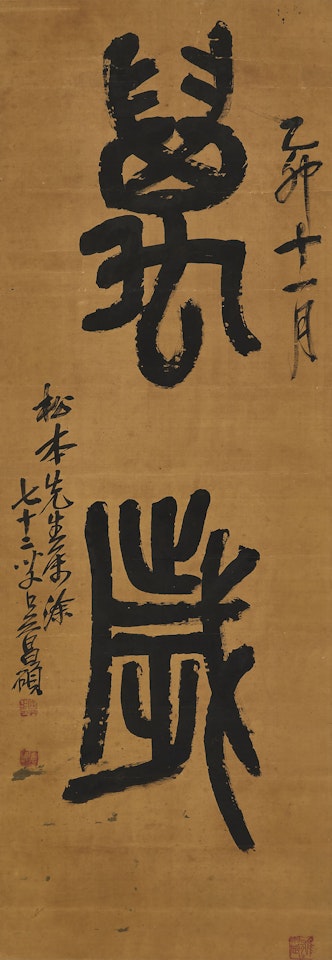 萬歲
乙卯十一月
松本先生屬涂
七十二叟吳昌碩